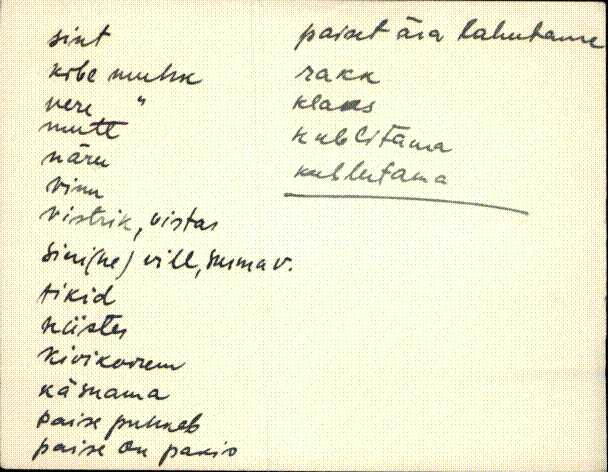 sint
kõbe muhk
vere "
mutt
näru
vinn
vistrik, vistas
sini(ne) vill, surma v.
tikid
küstes
kivikoorem
käsnama
paise puhkeb
paise on pakis
paiset ära lahutama
rakk
klaas
kublitama
kublutama